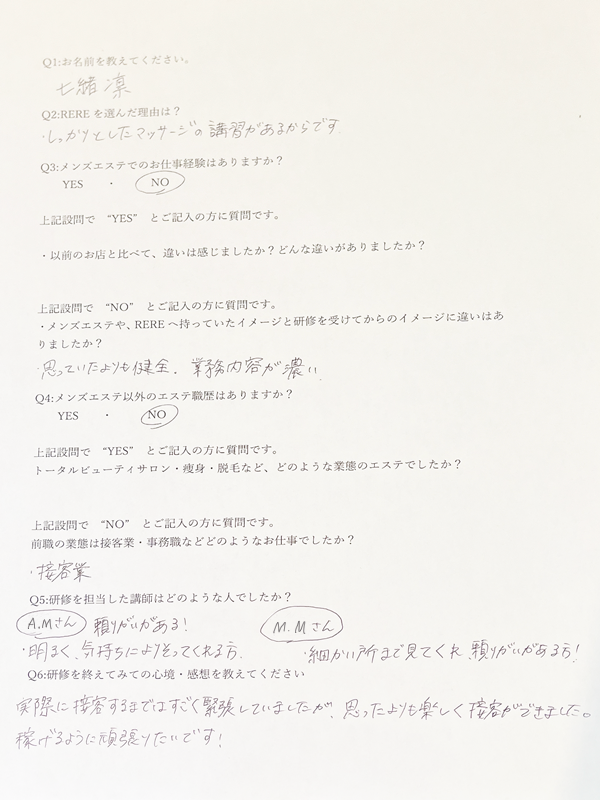 Q1:お名前を教えてください。
七緒 凛
Q2:RERE を選んだ理由は？
・しっかりとしたマッサージの講習があるからです
Q3:メンズエステでのお仕事経験はありますか？
YES ・ NO
上記設問で “YES” とご記入の方に質問です。
・以前のお店と比べて、違いは感じましたか？どんな違いがありましたか？
上記設問で “NO” とご記入の方に質問です。
・メンズエステや、RERE へ持っていたイメージと研修を受けてからのイメージに違いはあ
りましたか？
・思っていたよりも健全、業務内容が濃い
Q4:メンズエステ以外のエステ職歴はありますか？
YES ・ NO
上記設問で “YES” とご記入の方に質問です。
トータルビューティサロン・痩身・脱毛など、どのような業態のエステでしたか？
上記設問で “NO” とご記入の方に質問です。
前職の業態は接客業・事務職などどのようなお仕事でしたか？
・接客業
Q5:研修を担当した講師はどのような人でしたか？
A.Mさん 頼りがいがある！ M.Mさん
・明るく、気持ちによりそってくれる方、 ・細かい所まで見てくれ、頼りがいがある方！
Q6:研修を終えてみての心境・感想を教えてください
実際に接客するまではすごく緊張していましたが、思ったよりも楽しく接客ができました。
稼げるように頑張りたいです！